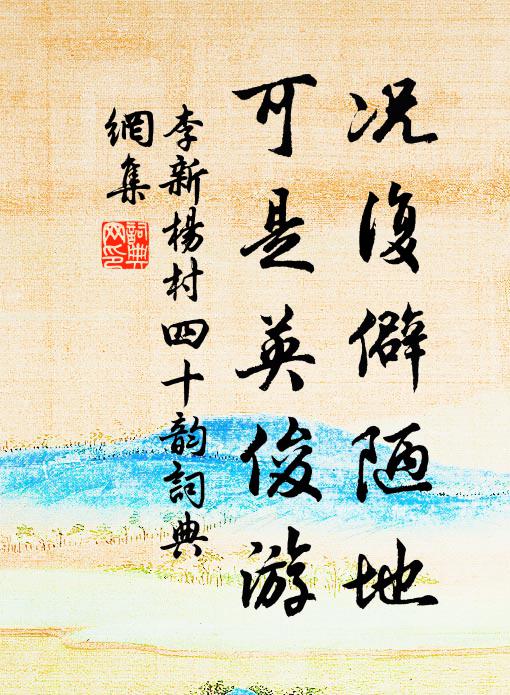 况復僻陋地
可是英俊游
李新楊村四十韵詞典
網集
詞典
网印